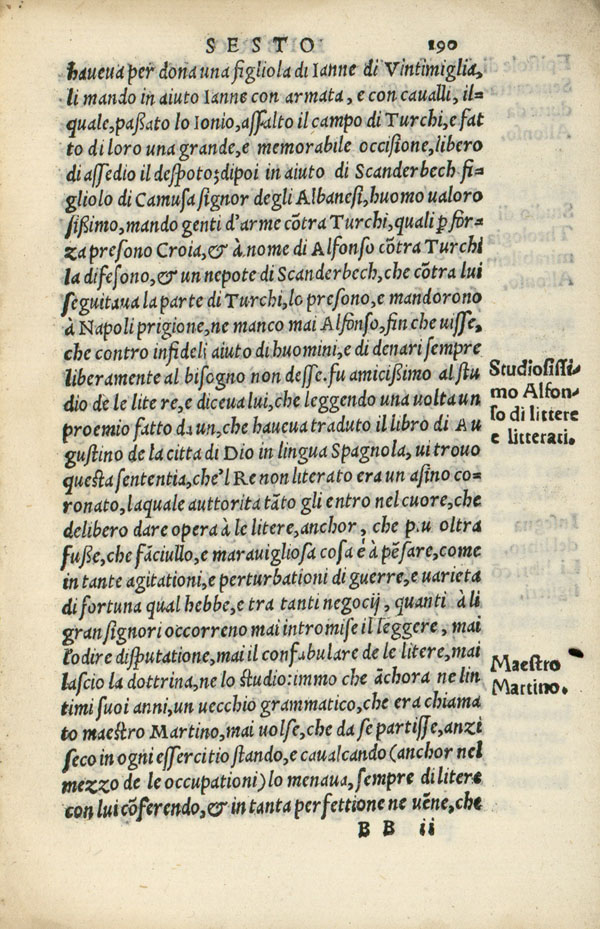 SESTO 190
haveva per dona una figliola di Ianne di Vintimiglia,
li mando in aiuto Ianne con armata, e con cavalli, il=
quale, paßato lo Ionio, aſſalto il campo di Turchi, e fat
to di loro una grande, e memorabile occiſione, libero
di aſſedio il deſpoto; dipoi in aiuto di Scanderbech fi=
gliolo di Camuſa ſignor degli Albaneſi, huomo valoro
ſißimo, mando genti d'arme cõtra Turchi, quali ꝑ for=
za preſono Croia, & à nome di Alfonſo cõtra Turchi
la difeſono, & un nepote di Scanderbech, che cõtra lui
ſeguitava la parte di Turchi, lo preſono, e mandorono
à Napoli prigione, ne manco mai Alfonſo, fin che viſſe,
che contro infideli aiuto di huomini, e di denari ſempre
liberamente al biſogno non deſſe. fu amicißimo al ſtu
dio de le lite re, e diceva lui, che leggendo una volta un
proemio fatto da un, che haveva traduto il libro di Au
guſtino de la citta di Dio in lingua Spagnola, vi trovo
queſta ſententia, che'l Re non literato era un aſino co=
ronato, laquale auttorita tãto gli entro nel cuore, che
delibero dare opera à le litere, anchor, che p.u oltra
fuße, che fãciullo, e maraviglioſa coſa è à pẽſare, come
in tante agitationi, e perturbationi di guerre, e varieta
di fortuna qual hebbe, e tra tanti negocij, quanti à li
gran ſignori occorreno mai intromiſe il leggere, mai
l'odire diſputatione, mai il confabulare de le litere, mai
laſcio la dottrina, ne lo ſtudio: immo che ãchora ne lin
timi ſuoi anni, un vecchio grammatico, che era chiama
to maeſtro Martino, mai volſe, che da ſe partiſſe, anzi
ſeco in ogni eſſercitio ſtando, e cavalcando (anchor nel
mezzo de le occupationi) lo menava, ſempre di litere
con lui cõferendo, & in tanta perfettione ne vẽne, che
BB ii
Studioſiſſi=
mo Alfon=
ſo di littere
e litterati.
Maeſtro
Martino.